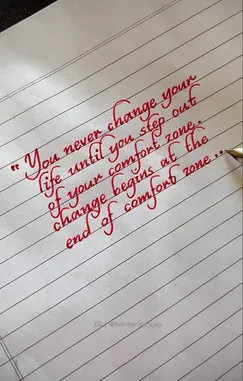 " You never change your
life until you step out
of your comfort zone.
change begins at the
end of comfort zone..."